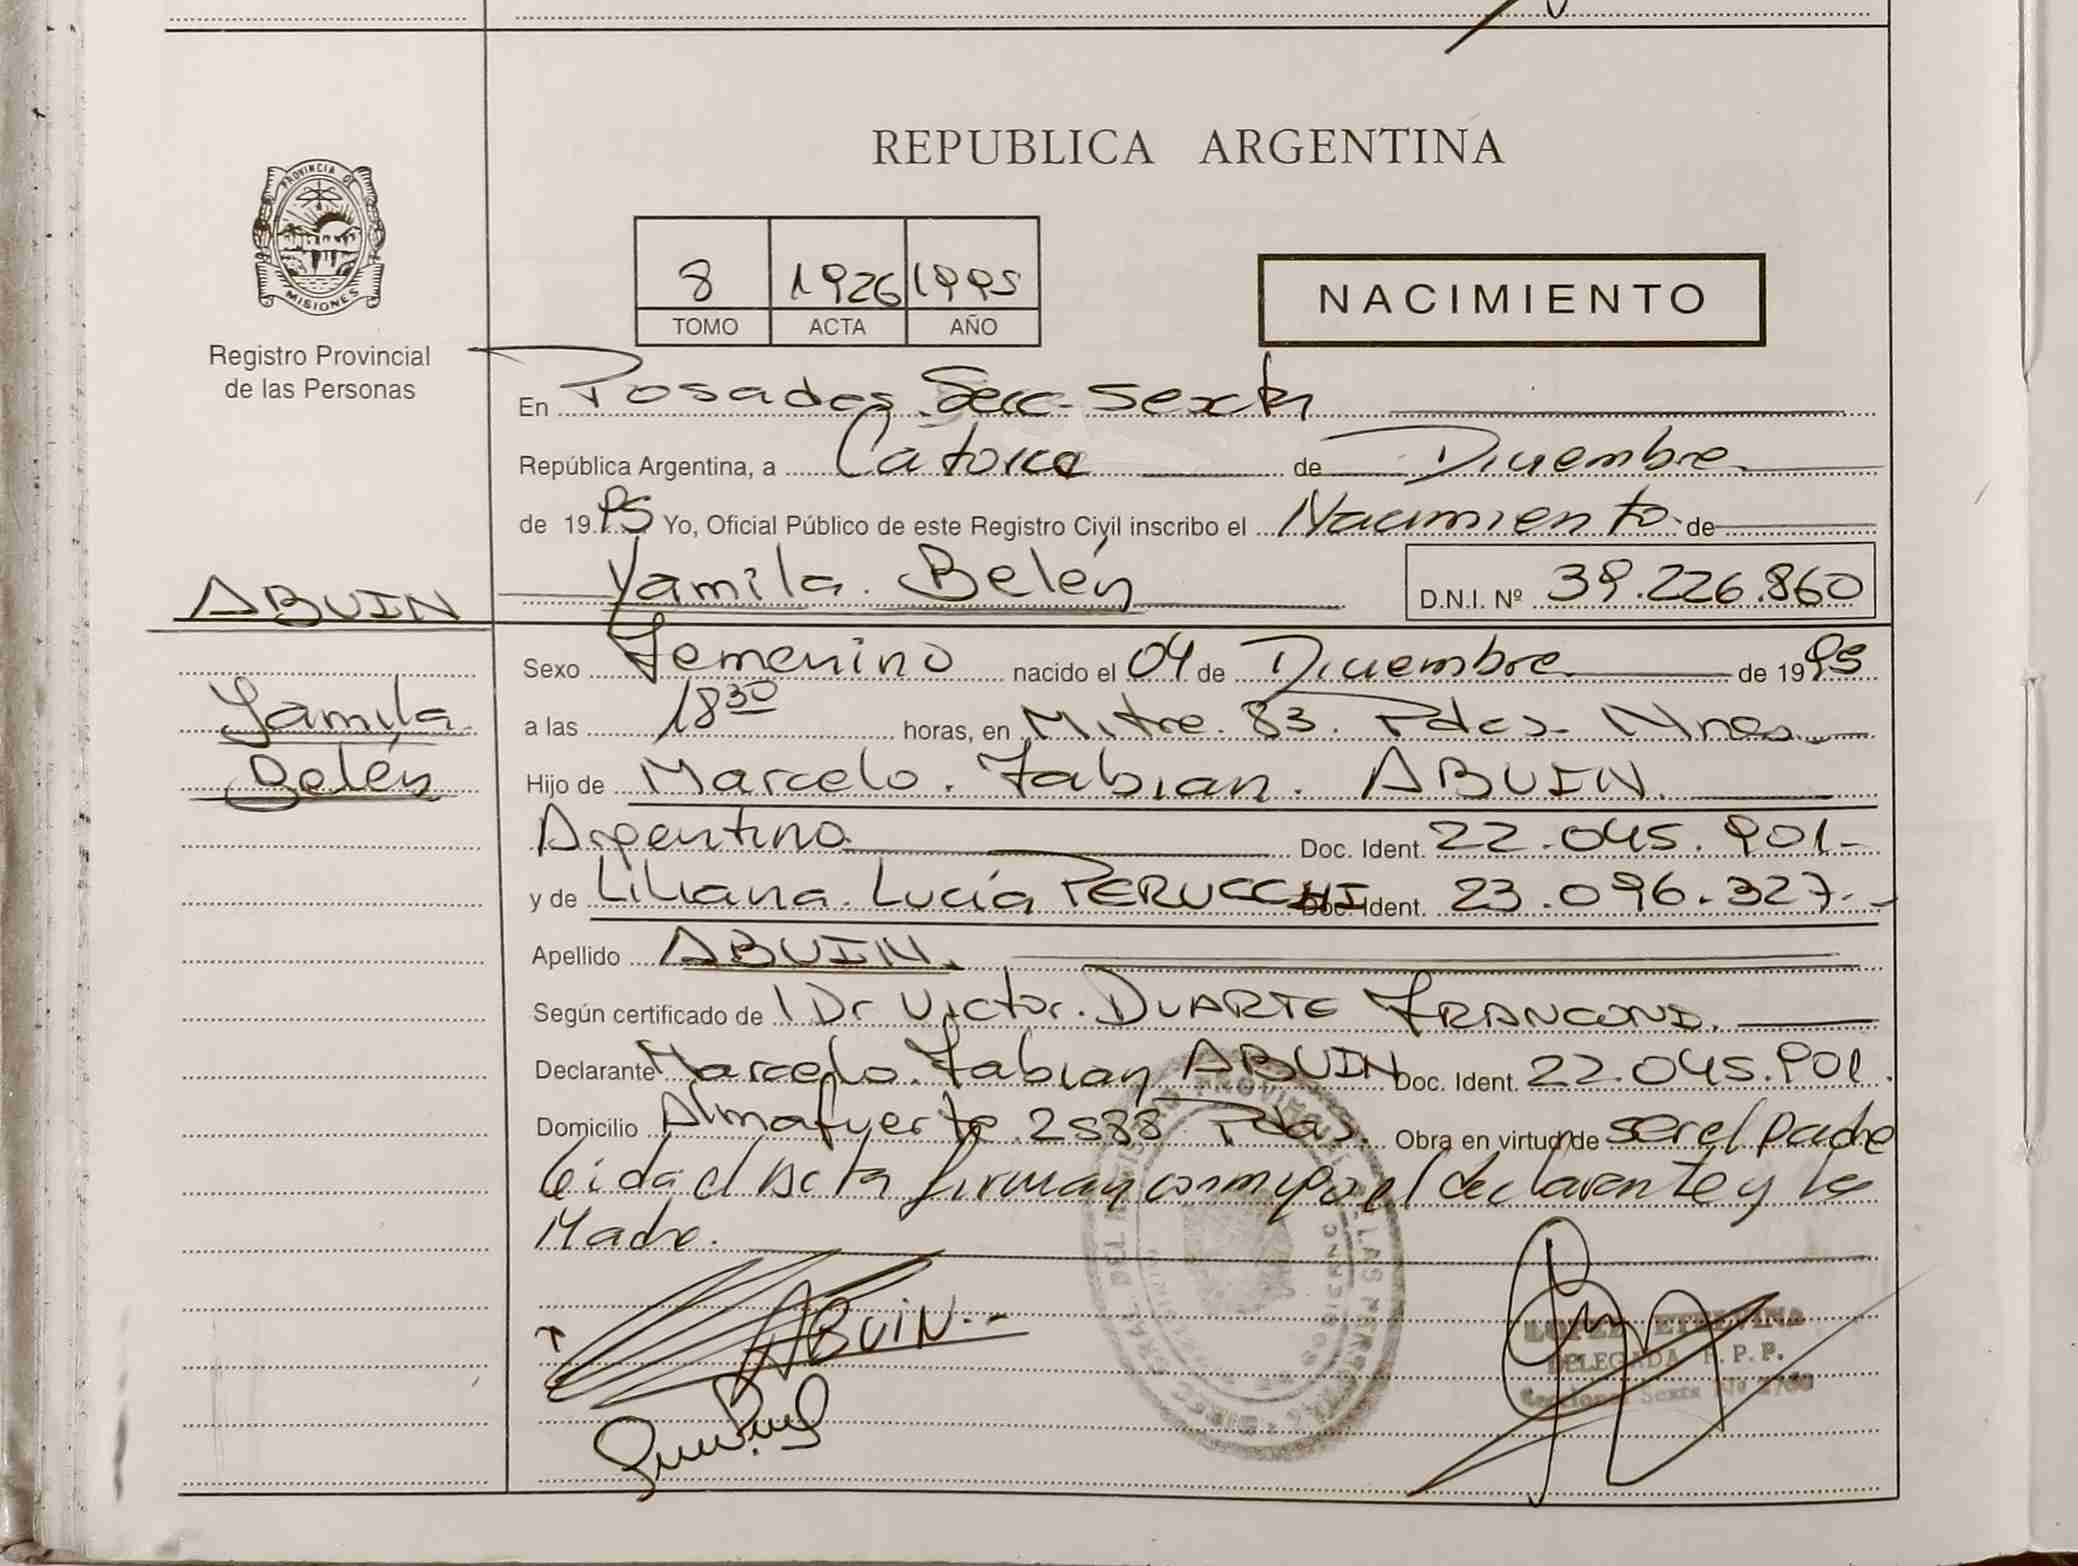 REPUBLICA ARGENTINA
PROVINCIA DE
MISIONES
Registro Provincial
de las Personas
8 1926 1995
TOMO ACTA AÑO
NACIMIENTO
En Posadas. Secc. Sexta
República Argentina, a Catorce de Diciembre
de 1995 Yo, Oficial Público de este Registro Civil inscribo el Nacimiento de
Yamila Belén D.N.I. Nº 39.226.860
ABUIN
Yamila
Belén
Sexo Femenino nacido el 04 de Diciembre de 1995
a las 18 30 horas, en Mitre. 83. Pdas. Mnes.
Hijo de Marcelo. Fabian. ABUIN.
Argentino Doc. Ident. 22.045.901-
y de Liliana. Lucía PERUCCHI Doc. Ident. 23.096.327.-
Apellido ABUIN.
Según certificado de l Dr Victor. DUARTE FRANCONI.
Declarante Marcelo. Fabian ABUIN Doc. Ident. 22.045.901.
Domicilio Almafuerte 2588 Pdas. Obra en virtud de ser el padre
leida el Acta firman conmigo el declarante y la
Madre.
ABUIN
LOPEZ ETELVINA
DELEGADA R.P.P.
Seccional Sexta Nº